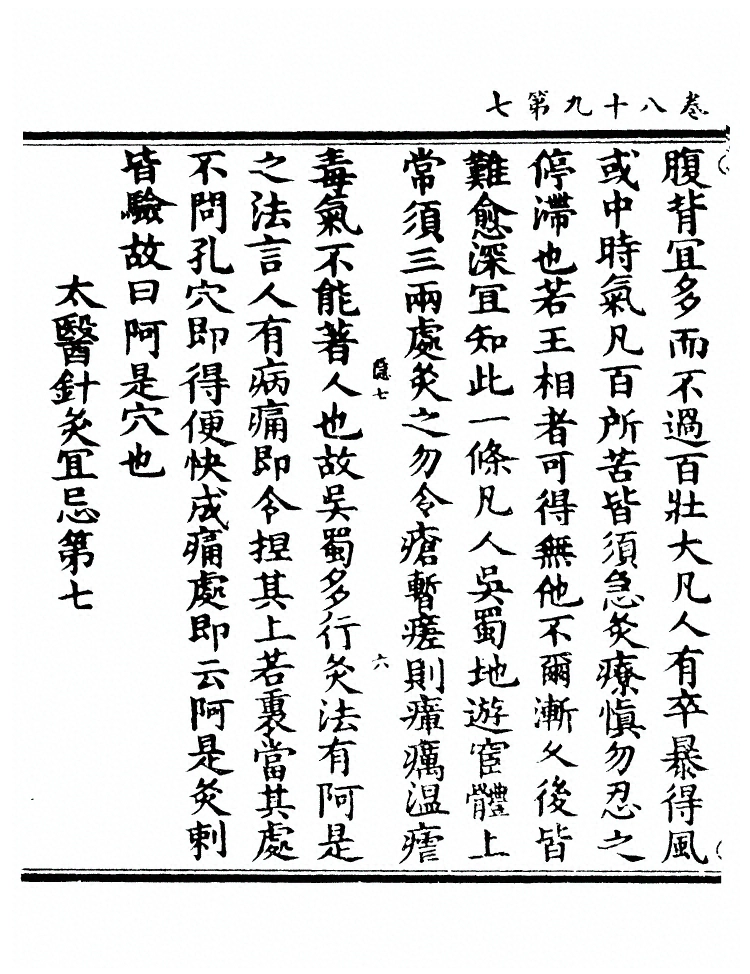 卷八十九第七
腹背宜多而不過百壯大凡人有卒暴得風
或中時氣凡百所苦皆須急灸療慎勿忍之
停滯也若王相者可得無他不爾漸久後皆
難愈深宜知此一條凡人吳蜀地遊宦體上
常須三兩處灸之勿令瘡暫瘥則瘴癘温瘧
隱七
六
毒氣不能著人也故吳蜀多行灸法有阿是
之法言人有病痛即令捏其上若裏當其處
不問孔穴即得便快成痛處即云阿是灸刺
皆驗故曰阿是穴也
太醫針灸宜忌第七